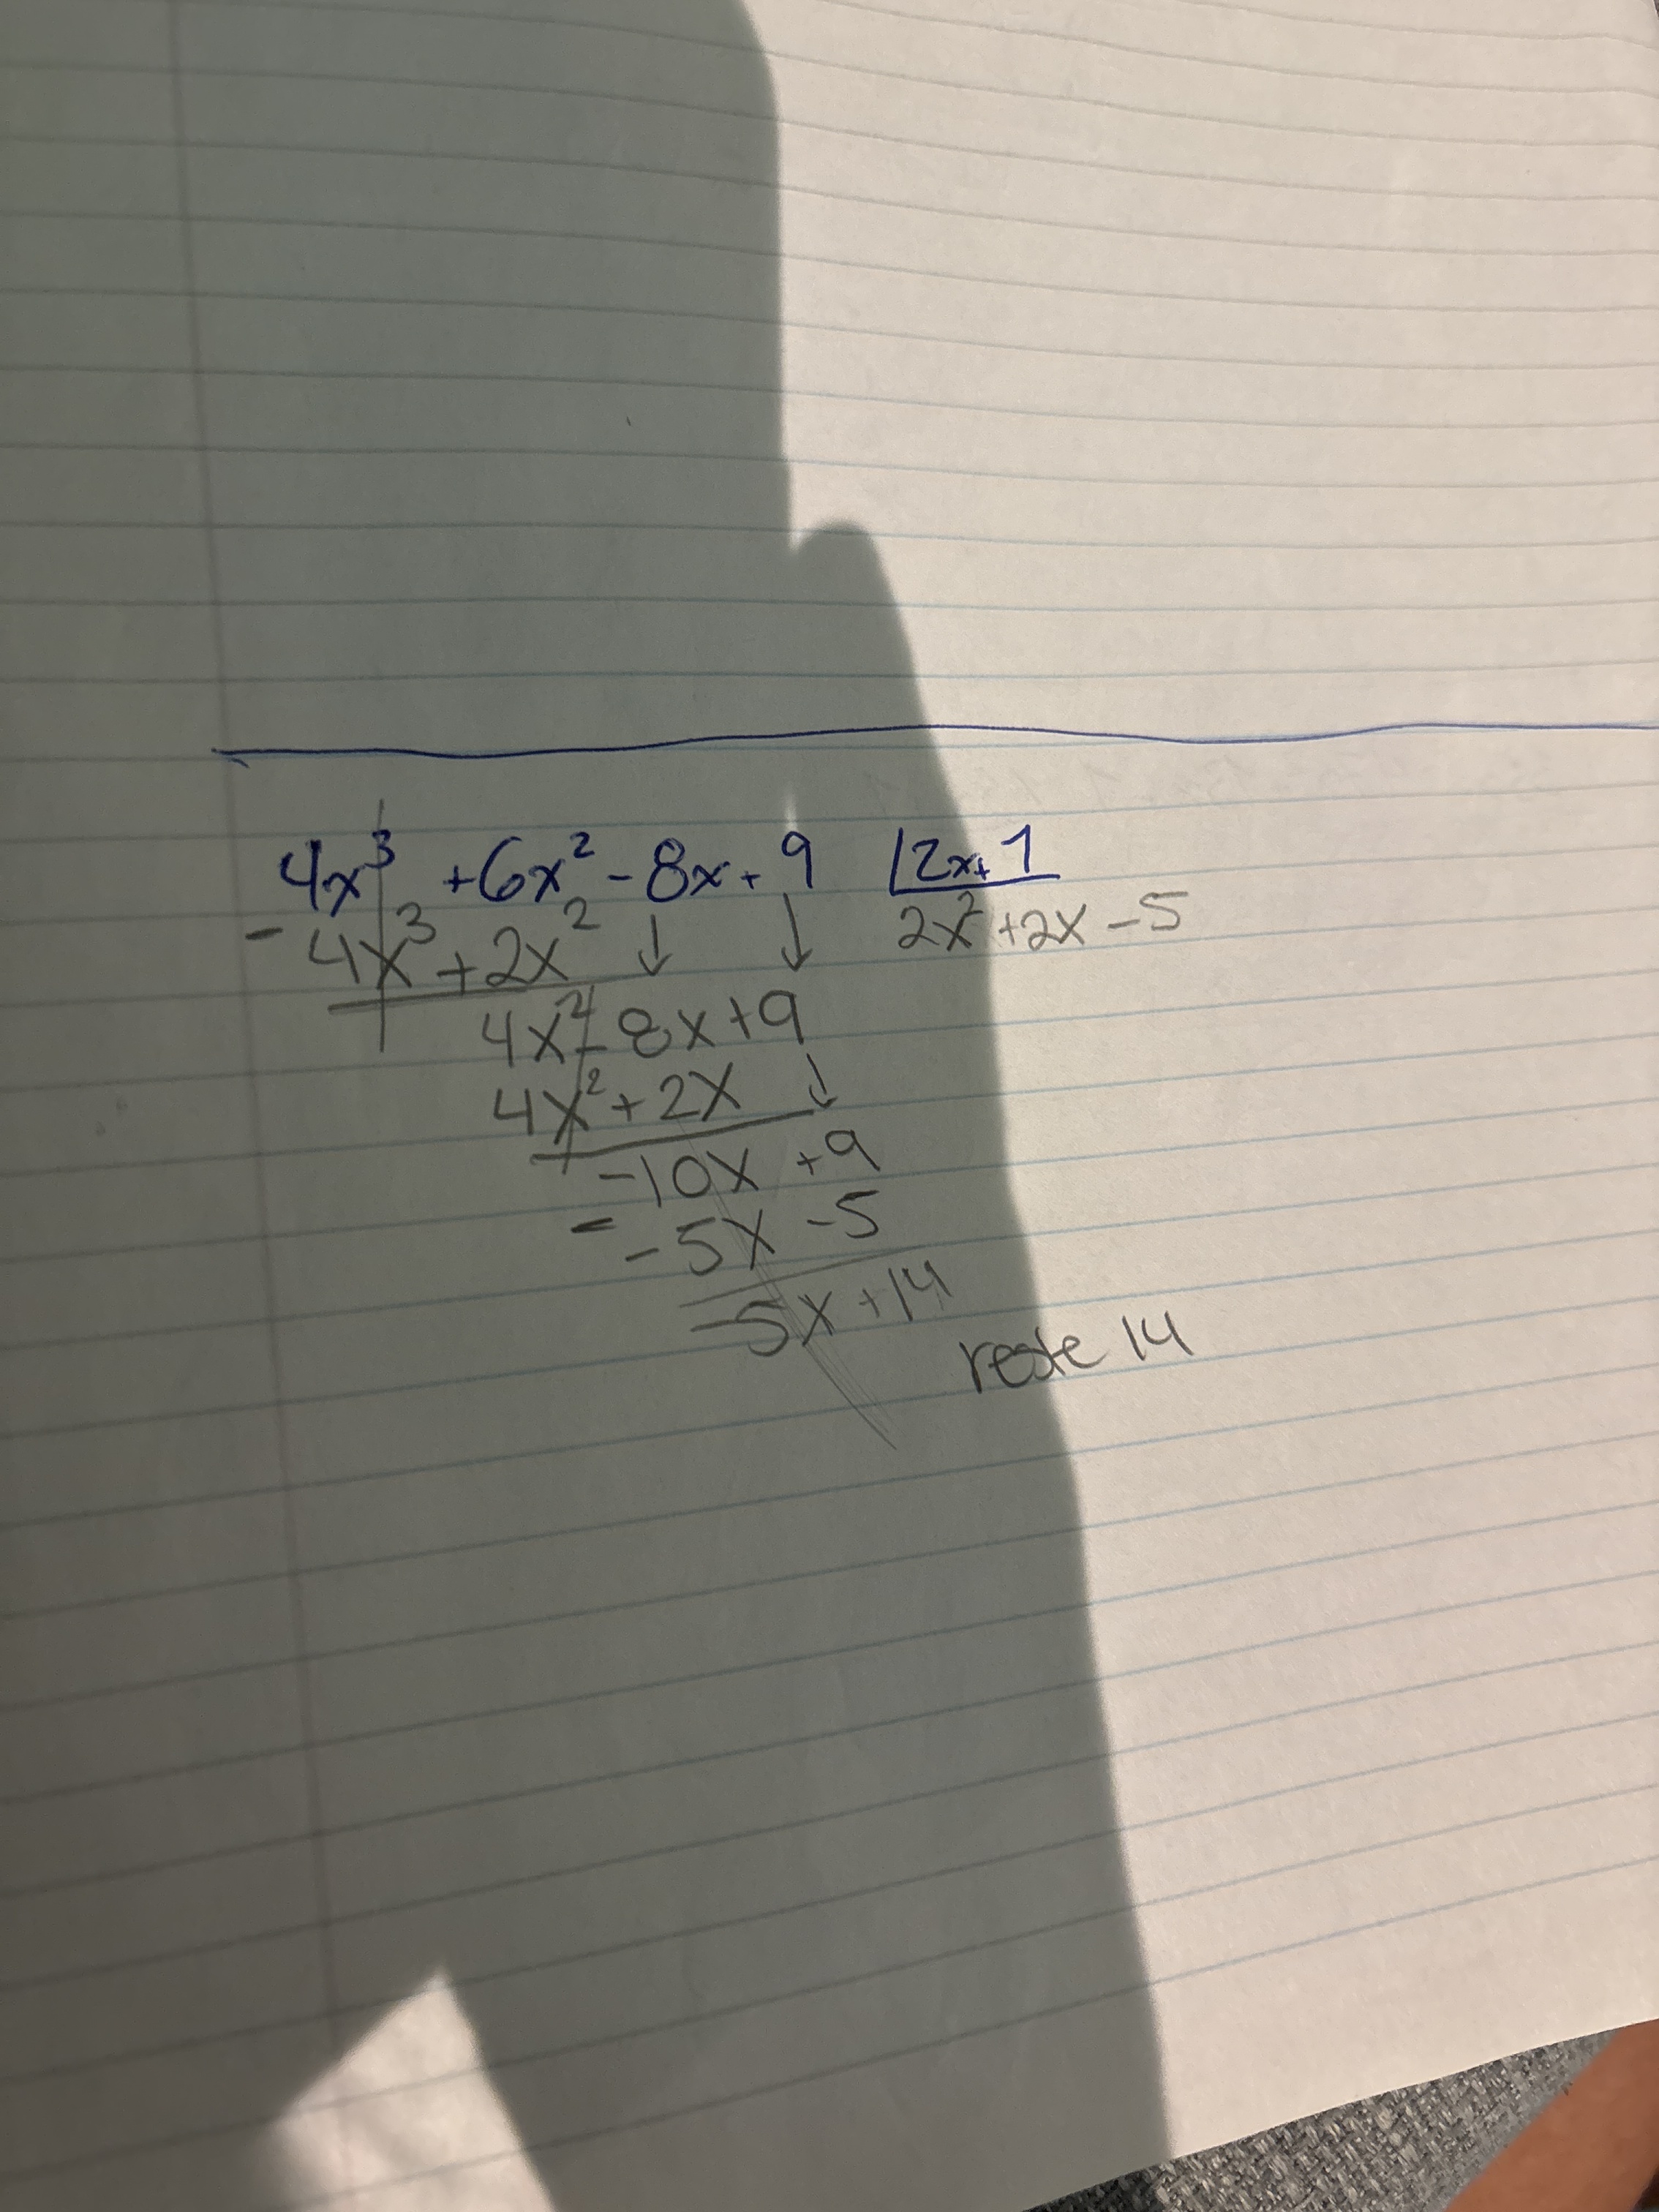 4x³ +6x² - 8x + 9 |2x+1
- 4x³ + 2x² ↓ ↓ 2x² +2x - 5
4x² - 8x + 9
4x² + 2x ↓
-10x + 9
- -5x - 5
-5x + 14
reste 14